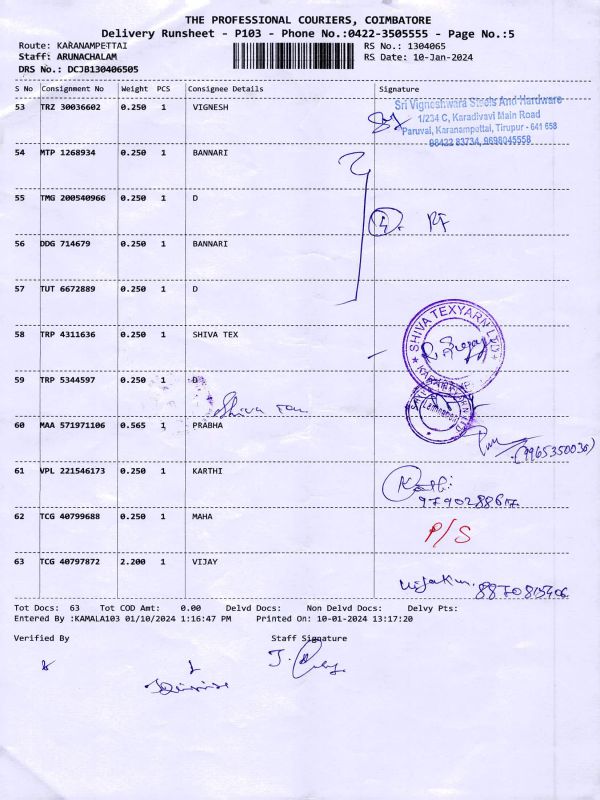 THE PROFESSIONAL COURIERS, COIMBATORE
Delivery Runsheet - P103 - Phone No.:0422-3505555 - Page No.:5
Route: KARANAMPETTAI
RS No.: 1304065
Staff: ARUNACHALAM
RS Date: 10-Jan-2024
DRS No.: DCJB130406505
S No Consignment No Weight PCS Consignee Details Signature
53 TRZ 30036602 0.250 1 VIGNESH
Sri Vigneshwara Steels And Hardware
1/234 C, Karadivavi Main Road
Paruvai, Karanampettai, Tirupur - 641 658
98422 83734, 9698045558
54 MTP 1268934 0.250 1 BANNARI
55 TMG 200540966 0.250 1 D
56 DDG 714679 0.250 1 BANNARI
57 TUT 6672889 0.250 1 D
58 TRP 4311636 0.250 1 SHIVA TEX
SHIVA TEXYARN LTD
59 TRP 5344597 0.250 1 D
Shiva Tex
60 MAA 571971106 0.565 1 PRABHA
(9965350036)
61 VPL 221546173 0.250 1 KARTHI
Karthi
9790288617
62 TCG 40799688 0.250 1 MAHA
P/S
63 TCG 40797872 2.200 1 VIJAY
8870815406
Tot Docs: 63 Tot COD Amt: 0.00 Delvd Docs: Non Delvd Docs: Delvy Pts:
Entered By :KAMALA103 01/10/2024 1:16:47 PM Printed On: 10-01-2024 13:17:20
Verified By Staff Signature